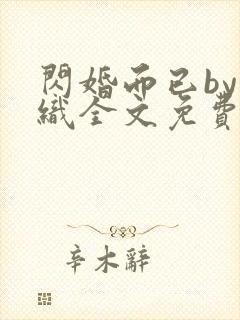 閃婚而已by
織全文免費
辛木辭